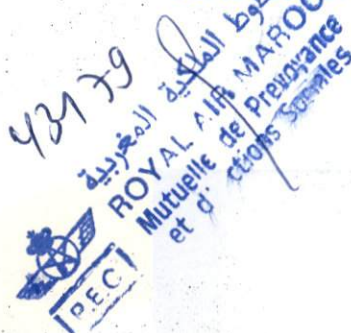 43179
الخطوط الملكية المغربية
ROYAL AIR MAROC
Mutuelle de Prévoyance
et d' ctions Sociales
P.E.C